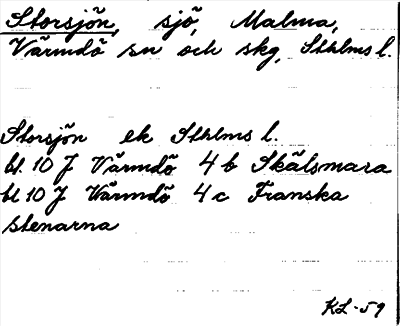 Storsjön, sjö, Malma,
Värmdö sn och skg, Sthlms l.
Storsjön ek Sthlms l.
bl. 10 J Värmdö 4 b Skälsmara
bl 10 J Värmdö 4 c Franska
stenarna
KL-59